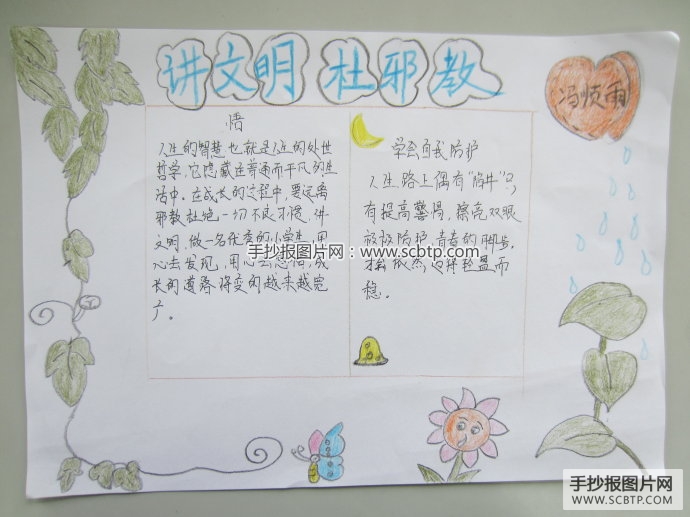 讲文明 杜邪教
冯烦雨
情
人生的智慧也就是人生的处世
哲学,它隐藏在普通而平凡的生
活中。在成长的过程中,要远离
邪教杜绝一切不良习惯,讲
文明,做一名优秀的小学生,用
心去发现,用心去
长的道路将变的越来越宽
广。
学会自我防护
人生路上偶有“陷井”只
有提高警惕,擦亮双眼
积极防护,青春的脚步,
才会依然 轻盈而
稳。
手抄报图片网:www.scbtp.com
手抄报图片网
WWW.SCBTP.COM